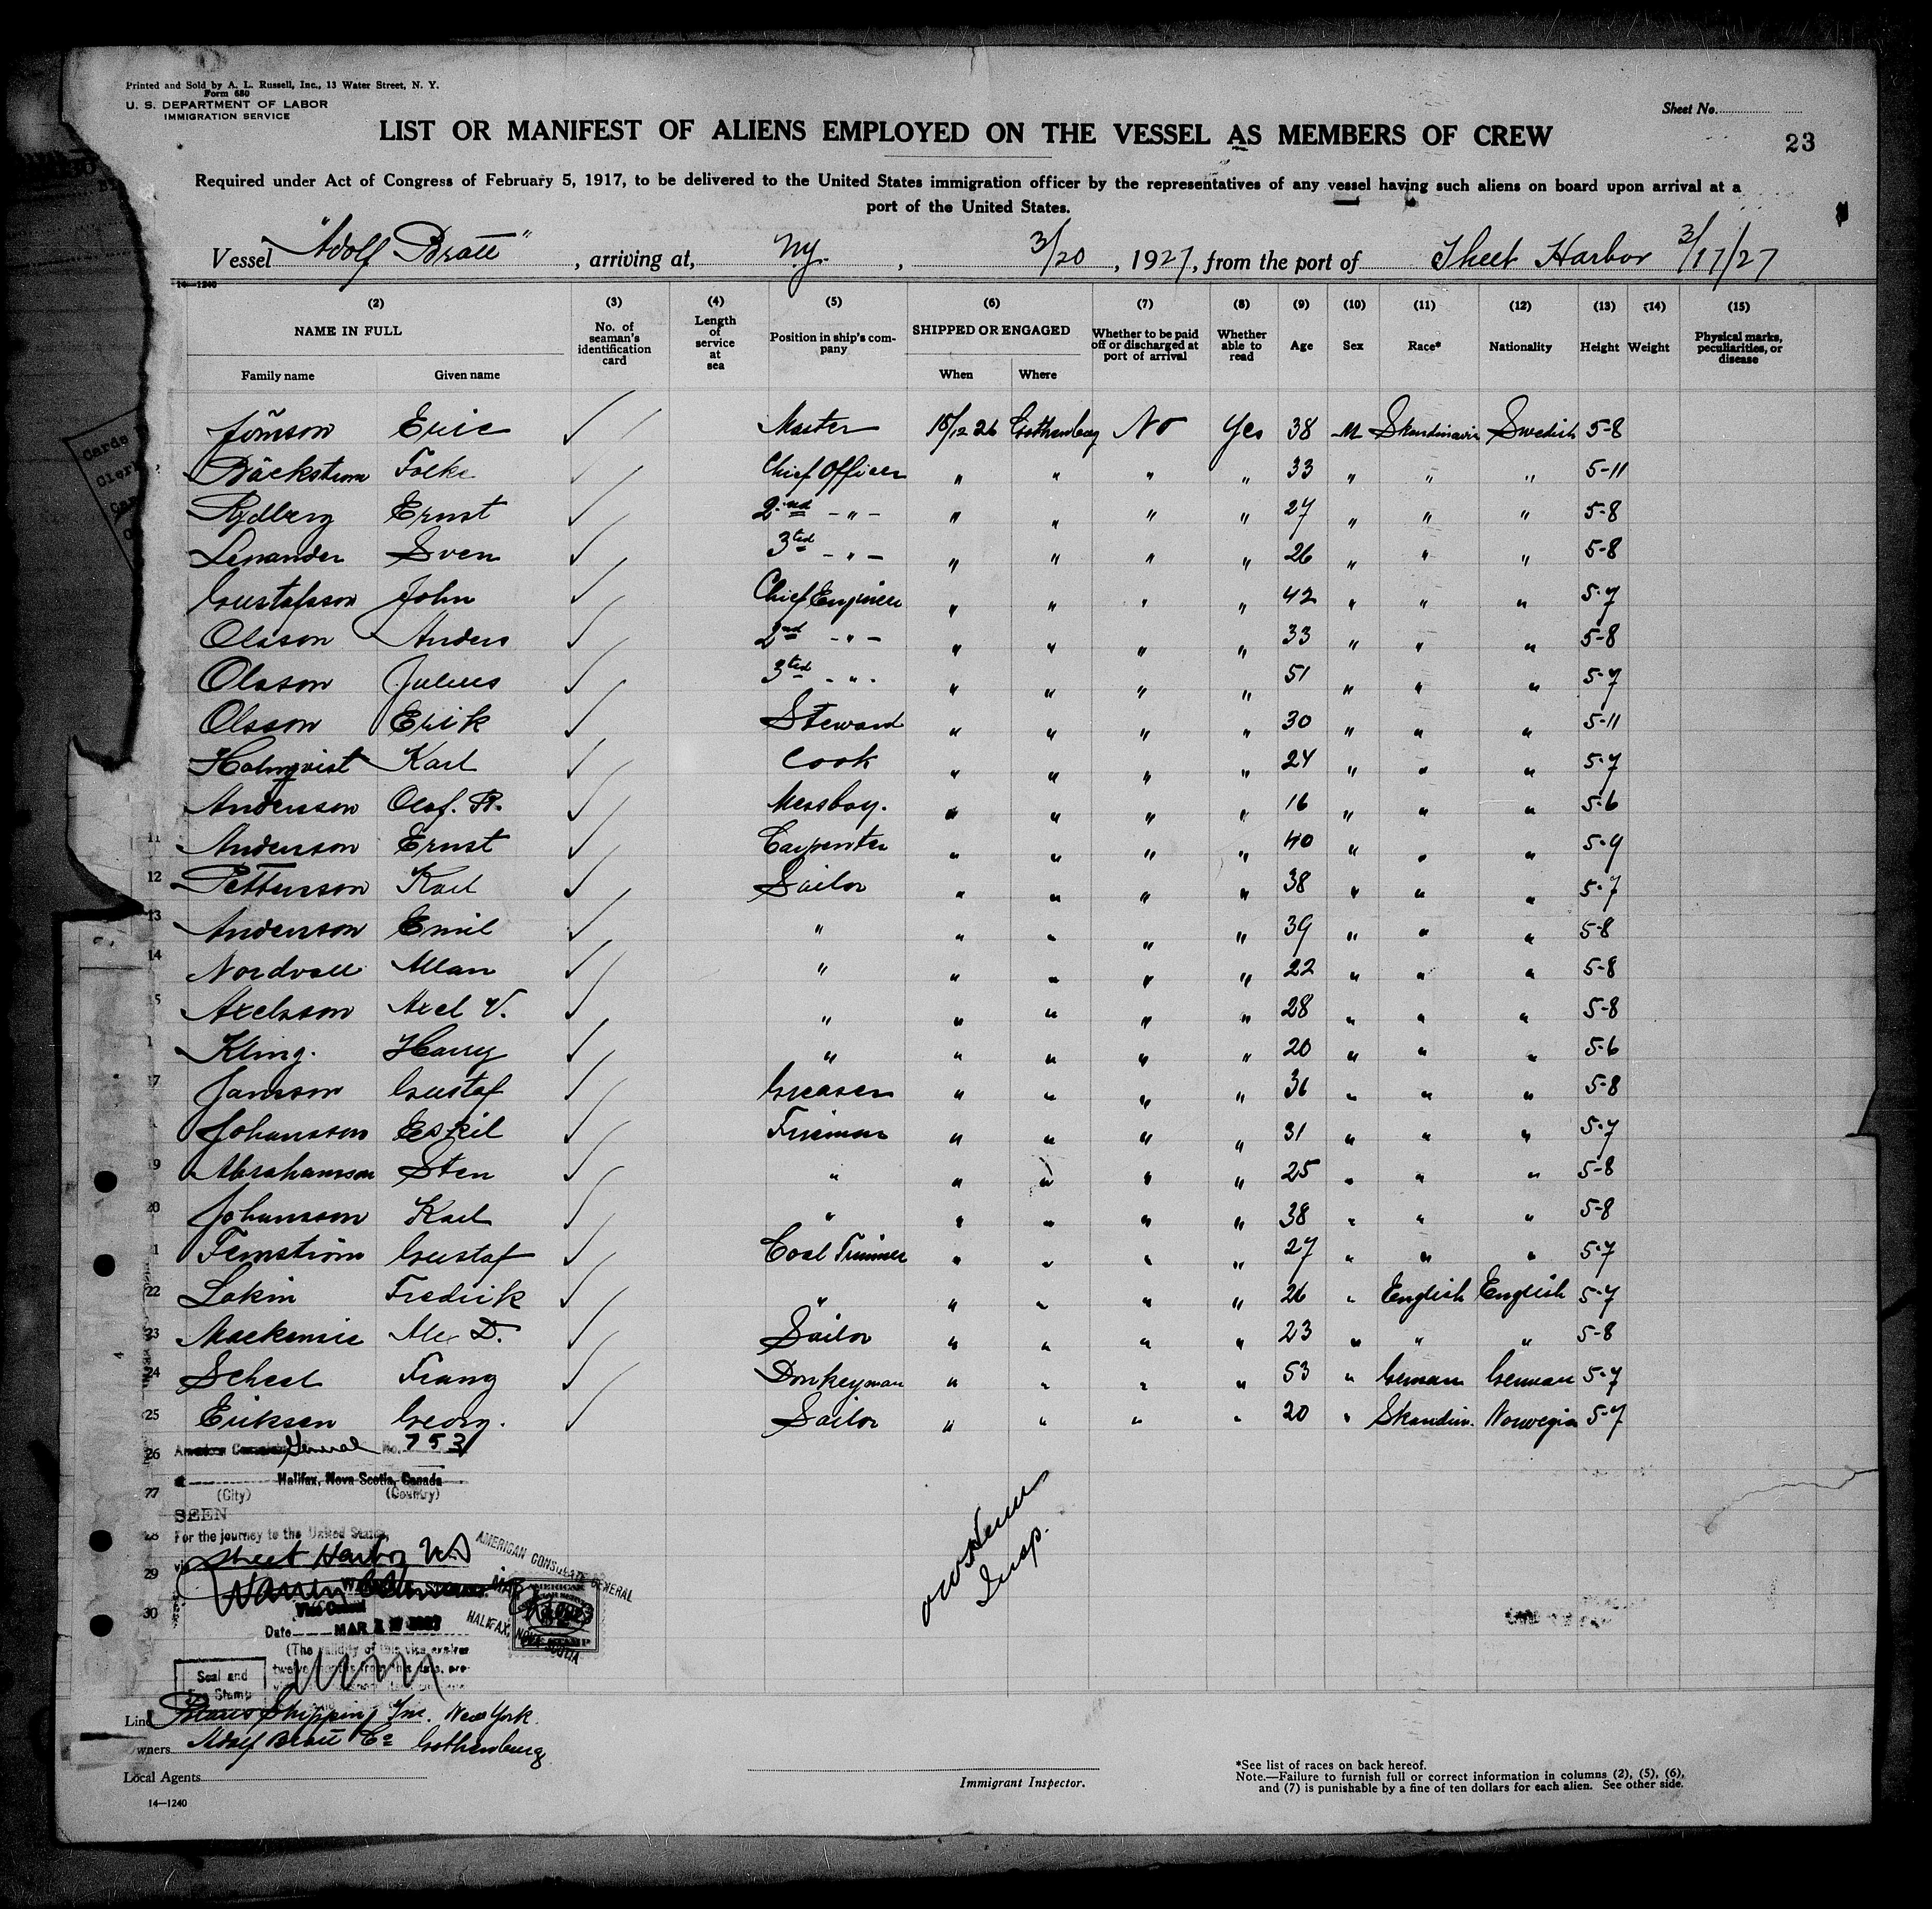 Printed and Sold by A. L. Russell, Inc., 13 Water Street, N. Y.
Form 680
U. S. DEPARTMENT OF LABOR
IMMIGRATION SERVICE
Sheet No.
LIST OR MANIFEST OF ALIENS EMPLOYED ON THE VESSEL AS MEMBERS OF CREW
23
Required under Act of Congress of February 5, 1917, to be delivered to the United States immigration officer by the representatives of any vessel having such aliens on board upon arrival at a
port of the United States.
Vessel "Adolf Bratt", arriving at, N.Y., 3/20, 1927, from the port of Sheet Harbor 3/17/27
14—1240
(2) (3) (4) (5) (6) (7) (8) (9) (10) (11) (12) (13) (14) (15)
NAME IN FULL No. of seaman's identification card Length of service at sea Position in ship's company SHIPPED OR ENGAGED Whether to be paid off or discharged at port of arrival Whether able to read Age Sex Race* Nationality Height Weight Physical marks, peculiarities, or disease
Family name Given name When Where
Eric ✓ Master 18/12 26 Gothenburg No Yes 38 M Skandinavia Swedish 5-8
Bäckstrom Folke ✓ Chief Officer " " " " 33 " " " 5-11
Rydberg Ernst ✓ 2nd - " - " " " " 27 " " " 5-8
Lenander Sven ✓ 3ted - " - " " " " 26 " " " 5-8
Gustafsson John ✓ Chief Engineer " " " " 42 " " " 5-7
Olsson Anders ✓ 2nd - " - " " " " 33 " " " 5-8
Olsson Julius ✓ 3ted - " - " " " " 51 " " " 5-7
Olsson Erik ✓ Steward " " " " 30 " " " 5-11
Holmqvist Karl ✓ Cook " " " " 24 " " " 5-7
Anderson Olof. R. ✓ Messboy. " " " " 16 " " " 5-6
11 Anderson Ernst ✓ Carpenter " " " " 40 " " " 5-9
12 Petterson Karl ✓ Sailor " " " " 38 " " " 5-7
13 Anderson Emil ✓ " " " " " 39 " " " 5-8
14 Nordvall Allan ✓ " " " " " 22 " " " 5-8
5 Axelsson Axel V. ✓ " " " " " 28 " " " 5-8
1 Kling. Harry ✓ " " " " " 20 " " " 5-6
17 Jansson Gustaf ✓ Greaser " " " " 36 " " " 5-8
Johansson Eskil ✓ Fireman " " " " 31 " " " 5-7
19 Abrahamson Sten ✓ " " " " " 25 " " " 5-8
20 Johansson Karl ✓ " " " " " 38 " " " 5-8
1 Gustaf ✓ Coal Trimmer " " " " 27 " " " 5-7
22 Lakin Fredrik ✓ " " " " " 26 " English English 5-7
23 Mackensie Alex D. ✓ Sailor " " " " 23 " " " 5-8
24 Scheel Franz ✓ Donkeyman " " " " 53 " German German 5-7
25 Eriksen Georg. ✓ Sailor " " " " 20 " Skandin. Norwegian 5-7
26 American Consulate General No. 753
at Halifax, Nova Scotia, Canada
27 (City) (Country)
SEEN
28 For the journey to the United States,
29 via Sheet Harbor NS
30 Vice Consul
Date MAR 1927
(The validity of this visa expires
twelve months from this date,
Seal and
Fee Stamp
AMERICAN CONSULATE GENERAL
HALIFAX, NOVA SCOTIA
AMERICAN
FEE STAMP
Insp.
Line Shipping Inc. New York.
Owners Adolf Bratt Co Gothenburg
Local Agents
Immigrant Inspector.
*See list of races on back hereof.
Note.—Failure to furnish full or correct information in columns (2), (5), (6),
and (7) is punishable by a fine of ten dollars for each alien. See other side.
14—1240
Cards